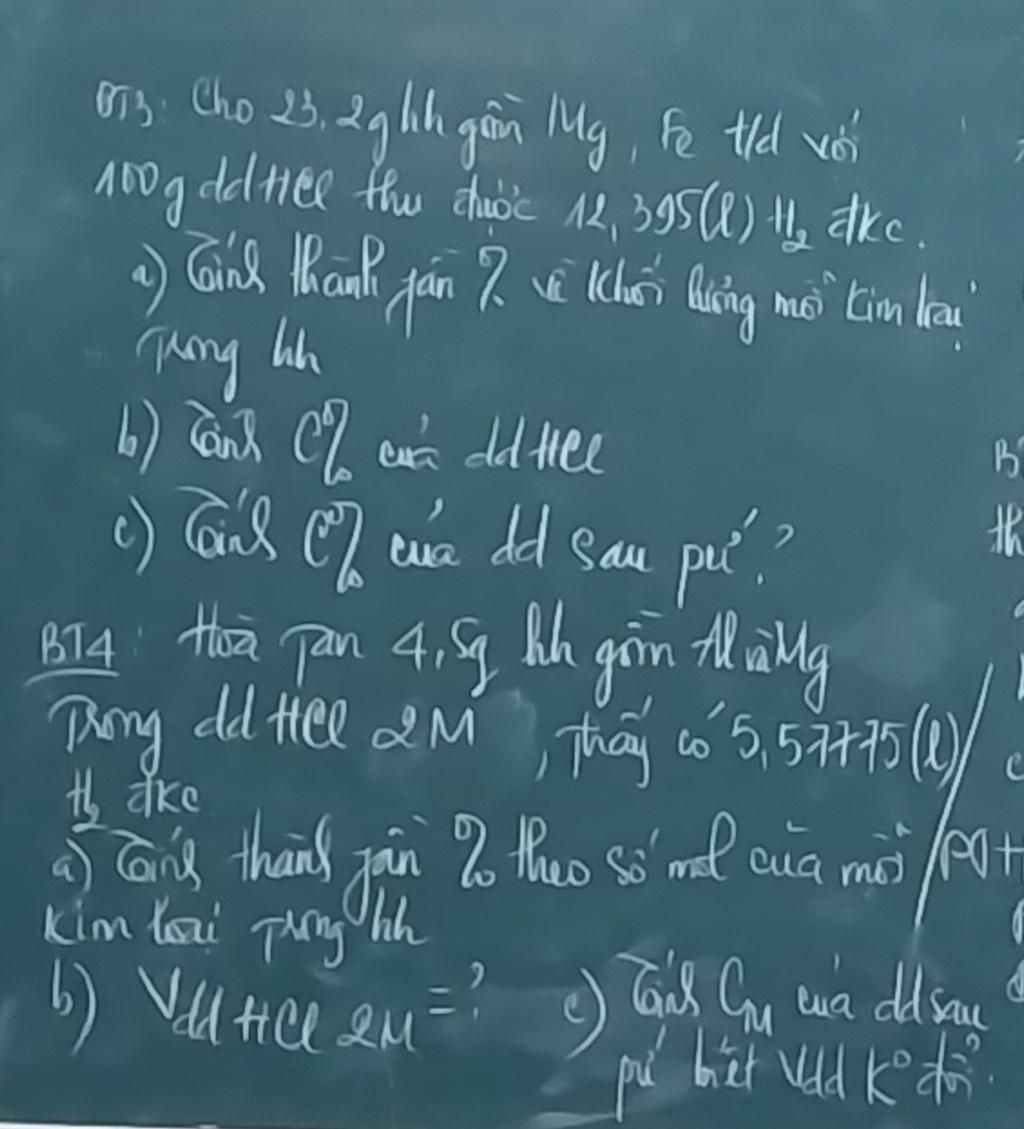 BT3: Cho 23,2g hh gồm Mg, Fe t/d với
100g dd HCl thu được 12,395(l) H₂ đkc.
a) Tính thành fần % về khối lượng mỗi kim loại
trong hh
b) Tính C% của dd HCl
c) Tính C% của dd sau pứ?
BT4: Hoà tan 4,5g hh gồm Al và Mg
Trong dd HCl 2M, thấy có 5,57775(l)
H₂ đkc
a) Tính thành fần % theo số mol của mỗi
kim loại trong hh
b) Vdd HCl 2M = ?
c) Tính CM của dd sau
pứ biết Vdd k° đổi.
B
th